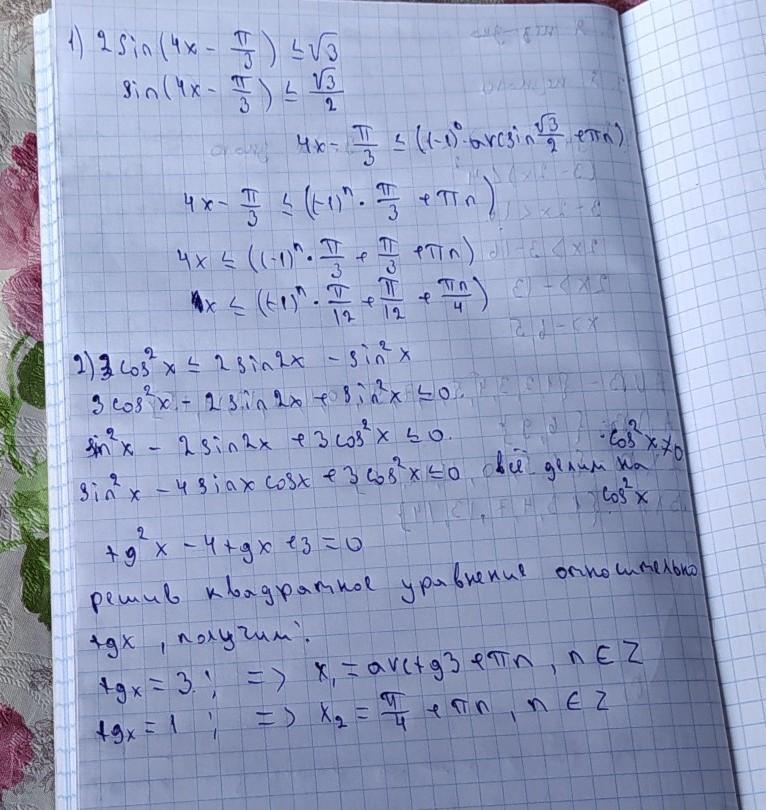 1) 2 sin(4x - π/3) ≤ √3
sin(4x - π/3) ≤ √3/2
4x - π/3 ≤ ((-1)ⁿ · arcsin √3/2 + πn)
4x - π/3 ≤ (-1)ⁿ · π/3 + πn)
4x ≤ ((-1)ⁿ · π/3 + π/3 + πn)
x ≤ (-1)ⁿ · π/12 + π/12 + πn/4)
2) 3 cos²x ≤ 2 sin2x - sin²x
3 cos²x - 2 sin2x + sin²x ≤ 0
sin²x - 2 sin2x + 3 cos²x ≤ 0. cos²x ≠ 0
sin²x - 4 sinx cosx + 3 cos²x ≤ 0, всё делим на
cos²x
tg²x - 4 tgx + 3 = 0
решив квадратное уравнение относительно
tgx, получим:
tgx = 3; => x₁ = arctg3 + πn, n ∈ Z
tgx = 1; => x₂ = π/4 + πn, n ∈ Z